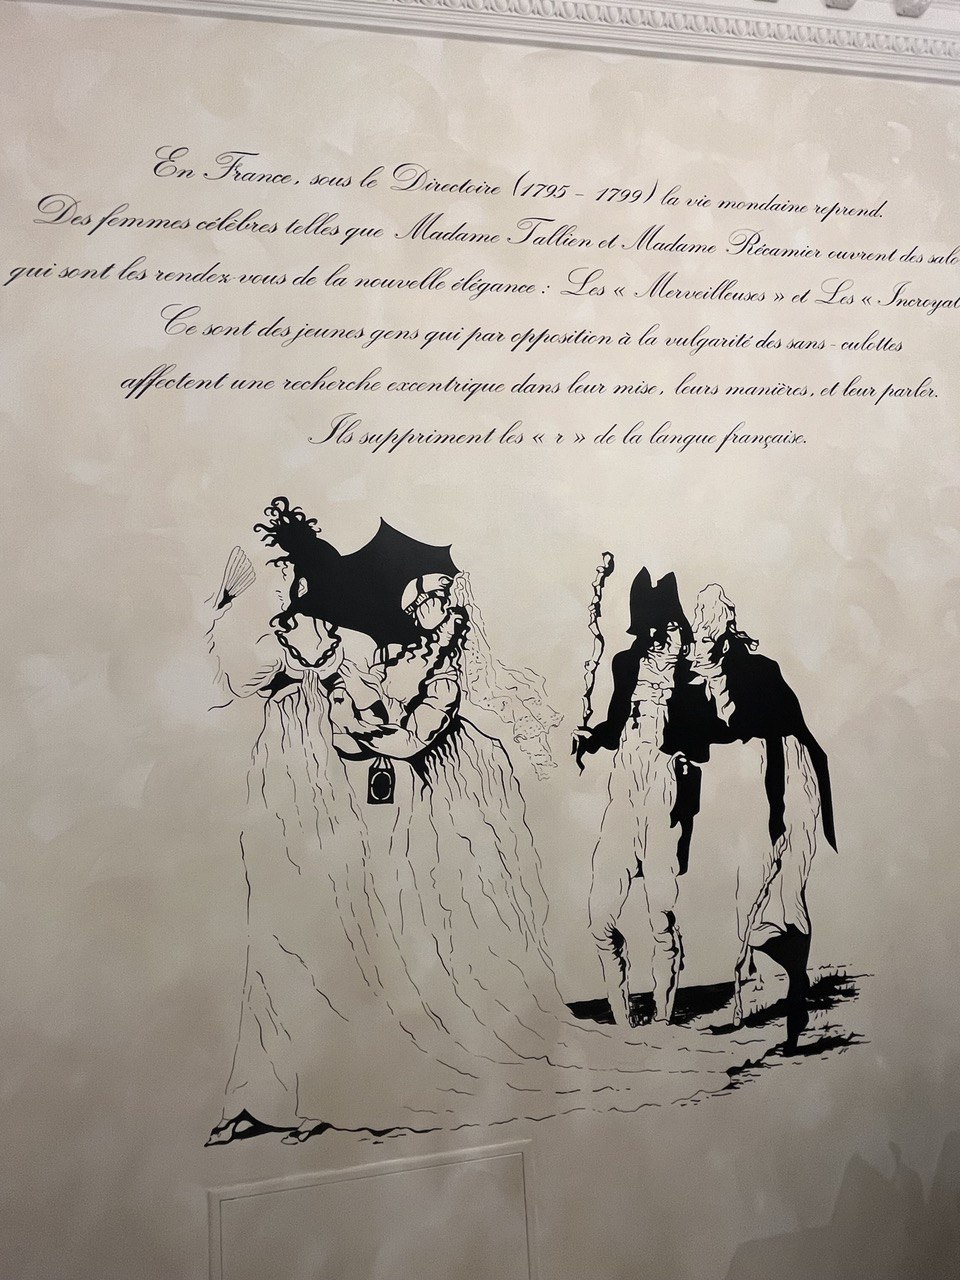 En France, sous le Directoire (1795 - 1799) la vie mondaine reprend.
Des femmes célèbres telles que Madame Tallien et Madame Récamier ouvrent des
qui sont les rendez-vous de la nouvelle élégance : Les « Merveilleuses » et Les «
Ce sont des jeunes gens qui par opposition à la vulgarité des sans-culottes
affectent une recherche excentrique dans leur mise, leurs manières, et leur parler.
Ils suppriment les « r » de la langue française.